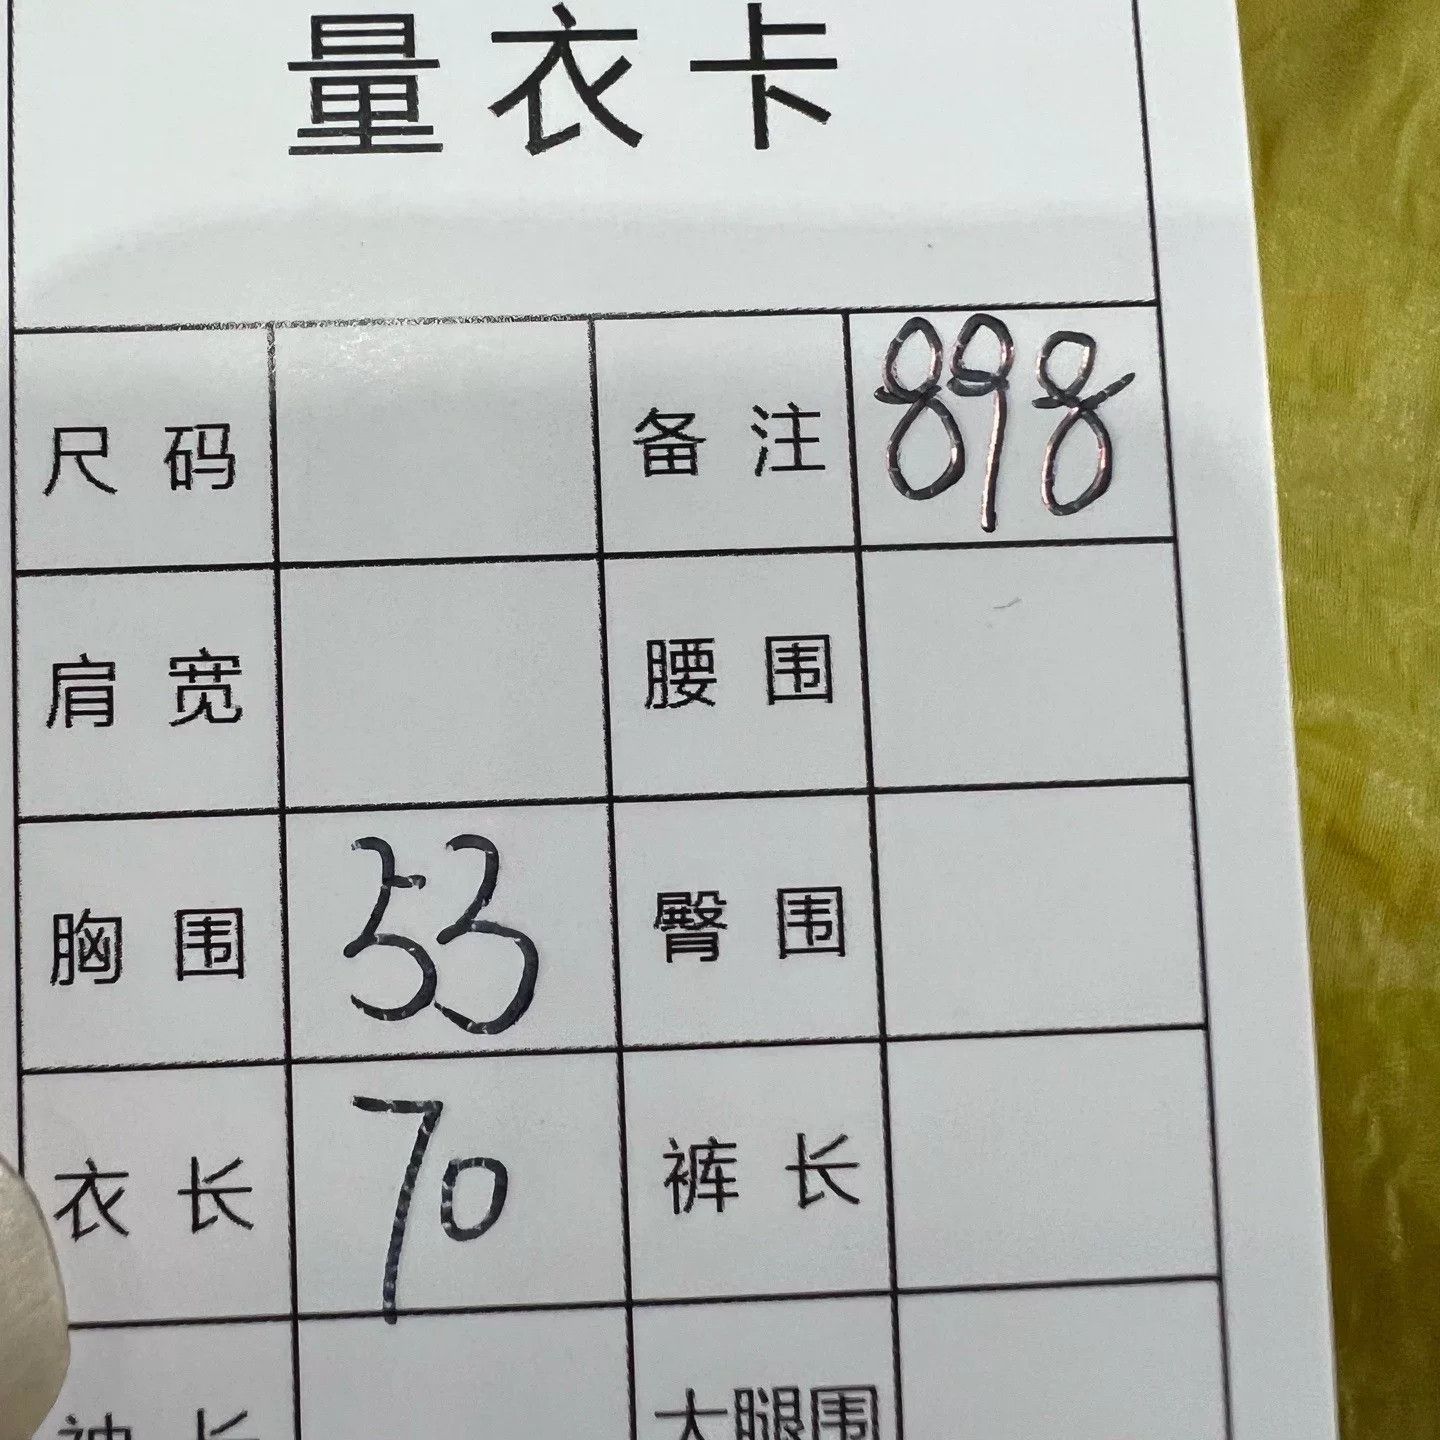 量衣卡
尺码 备注 898
肩宽 腰围
胸围 53 臀围
衣长 70 裤长
袖长 大腿围